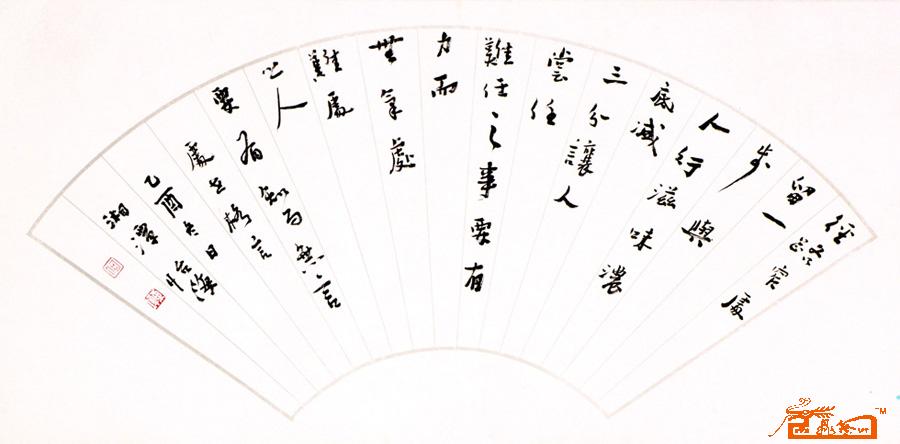 径路窄處
留一
步
人行與
滋味濃
底減
三分讓人
嘗任
難任之事要有
力而
無氣處
難處
之人
要有知而無言
處世格言
乙酉冬日
湘潭
TM